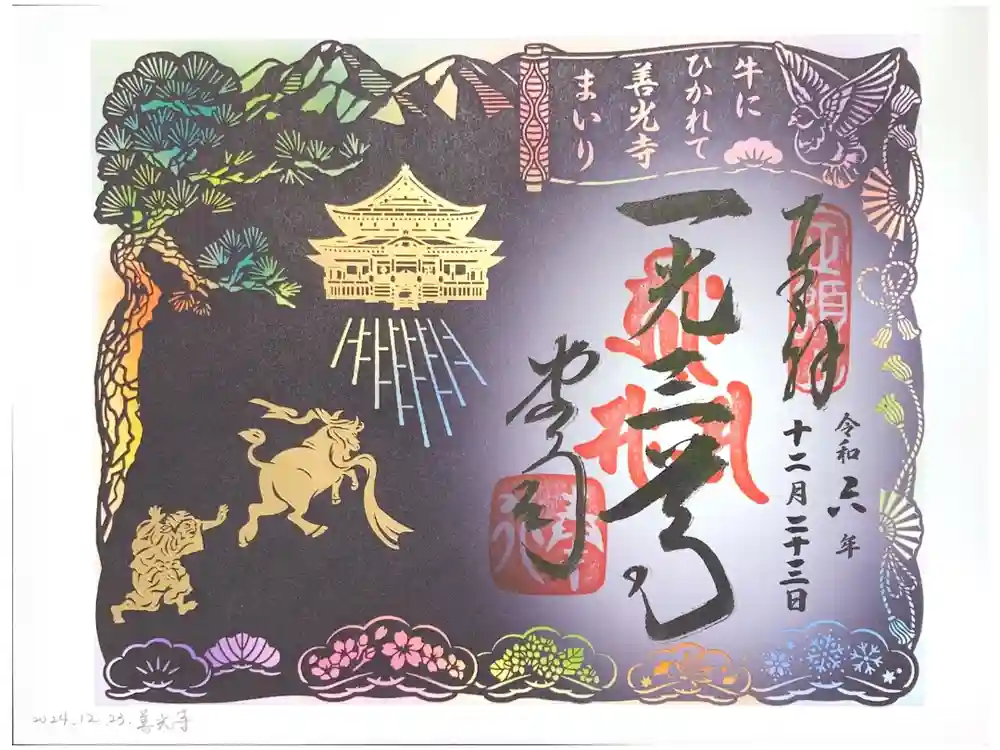 牛に
ひかれて
善光寺
まいり
奉拝
令和六年
十二月二十三日
一光三尊
2024.12.23.善光寺